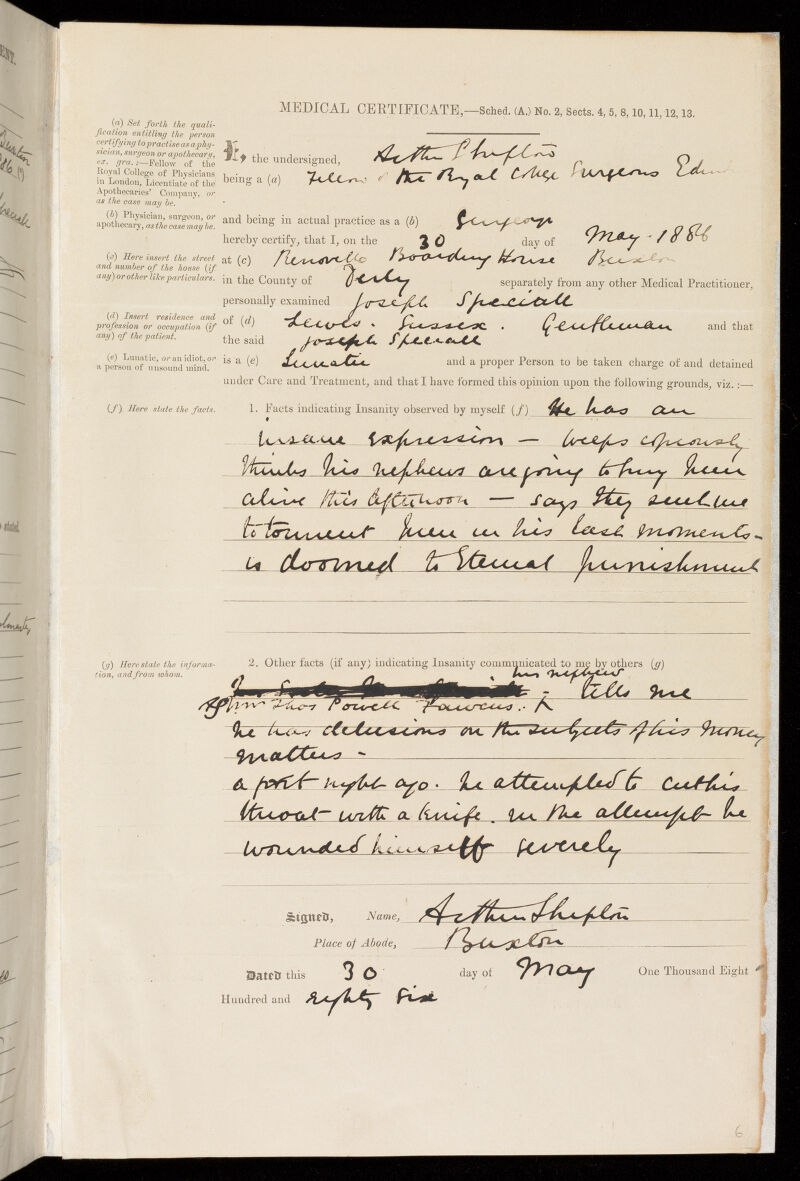 MEDICAL CERTIFICATE,—Sched. (A.) No. 2, Sects. 4, 5, 8, 10, 11, 12, 13.
(a) Set forth the quali-
fication entitling the person
certifying to practise as a phy-
sician, surgeon or apothecary,
ex. gra.:—Fellow of the
Royal College of Physicians
in London, Licentiate of the
Apothecaries' Company, or
as the case may be.
I, the undersigned, Arthur Shipton
being a (a) Fellow of the Royal College Surgeons
(b) Physician, surgeon, or
apothecary, as the case may be.
and being in actual practice as a (b) Surgeon
hereby certify, that I, on the 30 day of May - 1886
(c) Here insert the street
and number of the house (if
any) or other like particulars.
at (c) Boarding House Buxton
in the County of Derby separately from any other Medical Practitioner,
personally examined Joseph Speciall
(d) Insert residence and
profession or occupation (if
any) of the patient.
of (d) Lewes. Sussex. Gentleman and that
the said Joseph Speciall
(e) Lunatic, or an idiot, or
a person of unsound mind.
is a (e) Lunatic and a proper Person to be taken charge of and detained
under Care and Treatment, and that I have formed this opinion upon the following grounds, viz.:—
(f) Here state the facts.
1. Facts indicating Insanity observed by myself (f) He has an
insane expression — weeps copiously
thinks his nephews are going to bury him
alive this afternoon — says they sent me
to torment him in his last moments -
is doomed to Eternal punishment
(g) Here state the informa-
tion, and from whom.
2. Other facts (if any) indicating Insanity communicated to me by others (g)
his nephew
- tells me
Thos Powell
he has delusions on the subjects of his money
matters -
a fort night ago. he attempted to cut his
throat with a knife. in the attempt he
wounded himself severely
Signed, Name, Arthur Shipton
Place of Abode, Buxton
Dated this 30 day of May One Thousand Eight
Hundred and eighty six
6